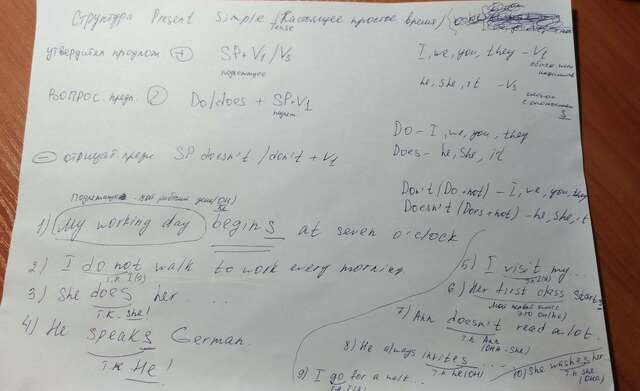 Структура Present Simple Tense (Настоящее простое время)
утвердител предлож + SP + V1 / Vs
подлежащее
I, we, you, they - V1
he, she, it - Vs
глагол с окончанием s
Вопрос. предл. ? Do/does + SP + V1
подлеж
Do - I, we, you, they
Does - he, she, it
- отрицат предл SP doesn't / don't + V1
Don't (Do + not) - I, we, you, they
Doesn't (Does + not) - he, she, it
Подлежащее - мой рабочий день (он)
1) My working day begins at seven o'clock
2) I do not walk to work every morning
т.к. I (я)
3) She does her ...
т.к. she!
4) He speaks German.
т.к. He!
5) I visit my...
6) Her first class starts
это он (he)
7) Ann doesn't read a lot.
т.к Ann (она - she)
8) He always invites ...
т.к he (он)
9) I go for a walk...
т.к. I (я)
10) She washes her...
т.к she (она)